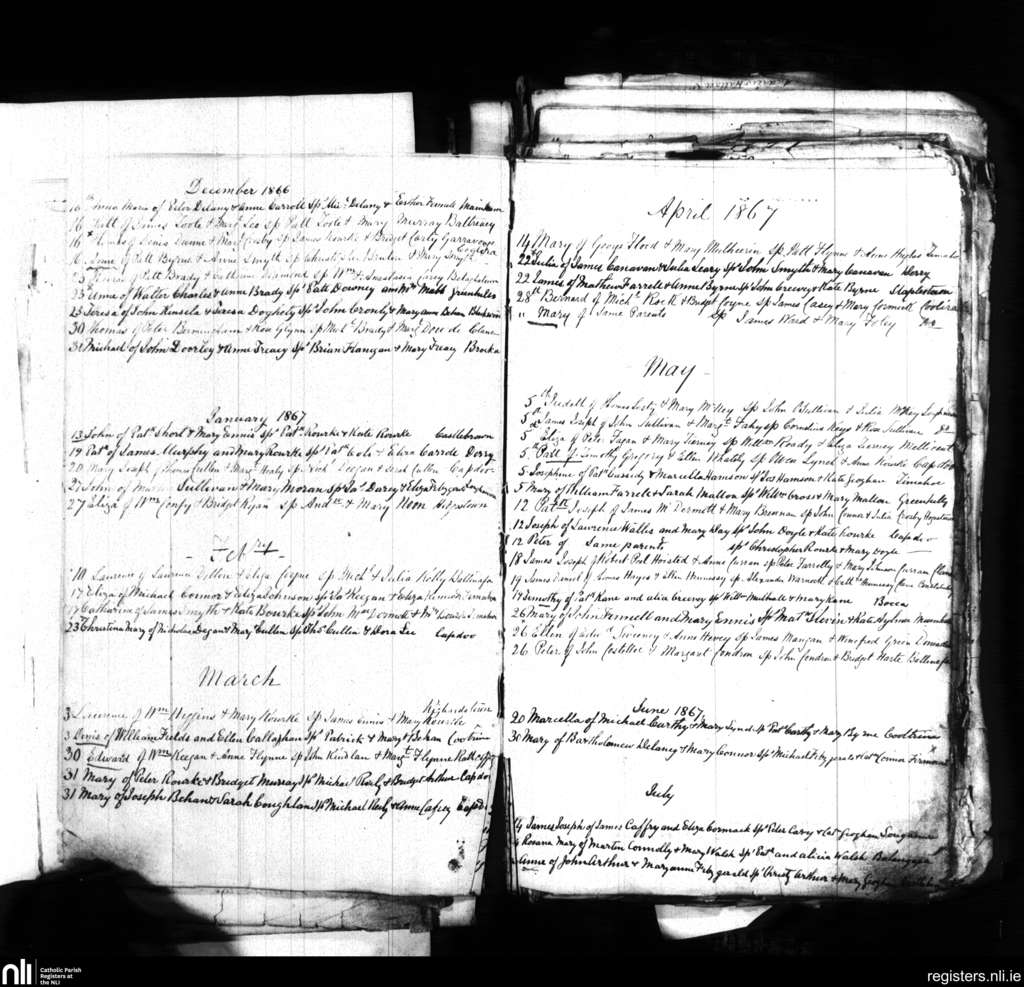 December 1866
16th Anna Maria of Peter Delany & Anne Carroll Sps Delany & Esther Mainham
16 Patt of James Toole & Margt Lee Sp Patt Toole & Mary Murray
16 of Denis Dunne & Mary Sp James Rourke & Bridget Garravogue
16 Anne of Patt Byrne & Anne Smyth Sp & Mary Smyth
of Patt Brady & Sp Wm & Anastasia
23 Anna of Walter Charles & Anne Brady Sps Patt Downey Greenhills
25 Teresa of John Kinsela & Teresa Sps John Cronly & Maryanne Behan
30 Thomas of Peter Bermingham & Rose Glynn Sp Brady & Clane
31 Michael of John Doorley & Anne Treacy Sps Brian Flanigan & Mary Treacy
January 1867
13 John of Patk Short & Mary Ennis Sps Patk Rourke & Kate Rourke Castlebrown
19 Patk of James Murphy and Mary Rourke Sps Patk Cole & Eliza Carroll Derry
20 Mary Joseph of Thomas Cullen & Margt Healy Sp Degan & Cullen Capdoo
27 John of Sullivan & Mary Moran Sps Jas Darcy & Eliza Fitzgerald
27 Eliza of Wm Confy & Bridget Ryan Sp & Mary Noon
Febry
10 Laurence of Laurence Dillon & Eliza Coyne Sp Michl & Julia Kelly
17 Eliza of Michael Connor & Eliza Johnson Sps Jas Keegan & Eliza
17 Catharine of James Smyth & Kate Bourke Sps John &
23 Christina Mary of Nicholas Degan & Mary Cullen Sp Thos Cullen & Dora Lee Capdoo
March
3 Laurence of Wm Higgins & Mary Rourke Sp James Ennis & Mary Rourke
3 Denis of William Fields and Ellen Callaghan Sps Patrick & Mary Behan
30 Edward of Wm Keegan & Anne Flynne Sp John & Margt Flynne Rathcoffey
31 Mary of Peter Rourke & Bridget Murray Sps Michael & Bridget Capdoo
31 Mary of Joseph Behan & Sarah Coughlan Sps Michael & Anne Capdoo
April 1867
14 Mary of George Flood & Mary Mulheerin Sp Patt Flynne & Anne Hughes
22nd Julia of James Canavan & Julia Leary Sps John Smyth & Mary Canavan Derry
22 James of Mathew Farrell & Anne Byrne Sps John Creevey & Kate Byrne Stapletown
28th Bernard of Michl Rock & Bridgt Coyne Sp James Casey & Mary Cormick
" Mary of Same Parents Sp James Ward & Mary Foley Do
May
5th of Thomas & Mary McKey Sp John O'Sullivan & Julia McKey
5th James Joseph of John Sullivan & Margt Fahy Sp Cornelius Keys & Rose Sullivan Do
5 Eliza of Peter Fagan & Mary Tierney Sp William & Eliza Tierney
5th Patt of Timothy Gregory & Ellen Sp Owen Lynch & Anne Rourke Capdoo
5 Josephine of Patt Cassidy & Marcella Hanson Sp Jas Hanson & Kate Geoghan Timahoe
5 Mary of William Farrell & Sarah Mallon Sp Willm Cross & Mary Mallon Greenhills
12 Patk Joseph of James McDermott & Mary Brennan Sp John Connor & Julia Crosby
12 Joseph of Lawrence Wallis and Mary Day Sps John Doyle & Kate Rourke Capdoo
12 Peter of Same parents Sps Christopher Rourke & Mary Doyle
18 James Joseph of Robert Peel Horsted & Anne Curran Sp Peter Farrelly & Mary Johnson Curran Clane
19 James Daniel of Hayes & Ellen Hennessy Sp Alexander & Hennessy
19 Timothy of Patk Kane and Alia Creevey Sp Willm Mulhall & Mary Kane Bocca
26 Mary of John Fennell and Mary Ennis Sps Mat Slevin & Kate Aylmer
26 Ellen of Sweeney & Anne Hevey Sp James Mangan & Winefred Green
26 Peter of John Costelloe & Margaret Condron Sp John Condron & Bridget Harte
June 1867
20 Marcella of Michael Carthy & Mary Lynd Sp Patk Carthy & Mary Byrne
30 Mary of Bartholomew Delany & Mary Connor Sps Michael Fitzgerald & Cat Connor
July
14 James Joseph of James Caffry and Eliza Cormack Sps Peter Carey & Cat Geoghan
Rosana Mary of Martin Connolly & Mary Walsh Sps Patk and Alicia Walsh
Anne of John Arthur & Maryanne Fitzgerald Sps Christy Arthur & Mary
nli
Catholic Parish
Registers at
the NLI
registers.nli.ie